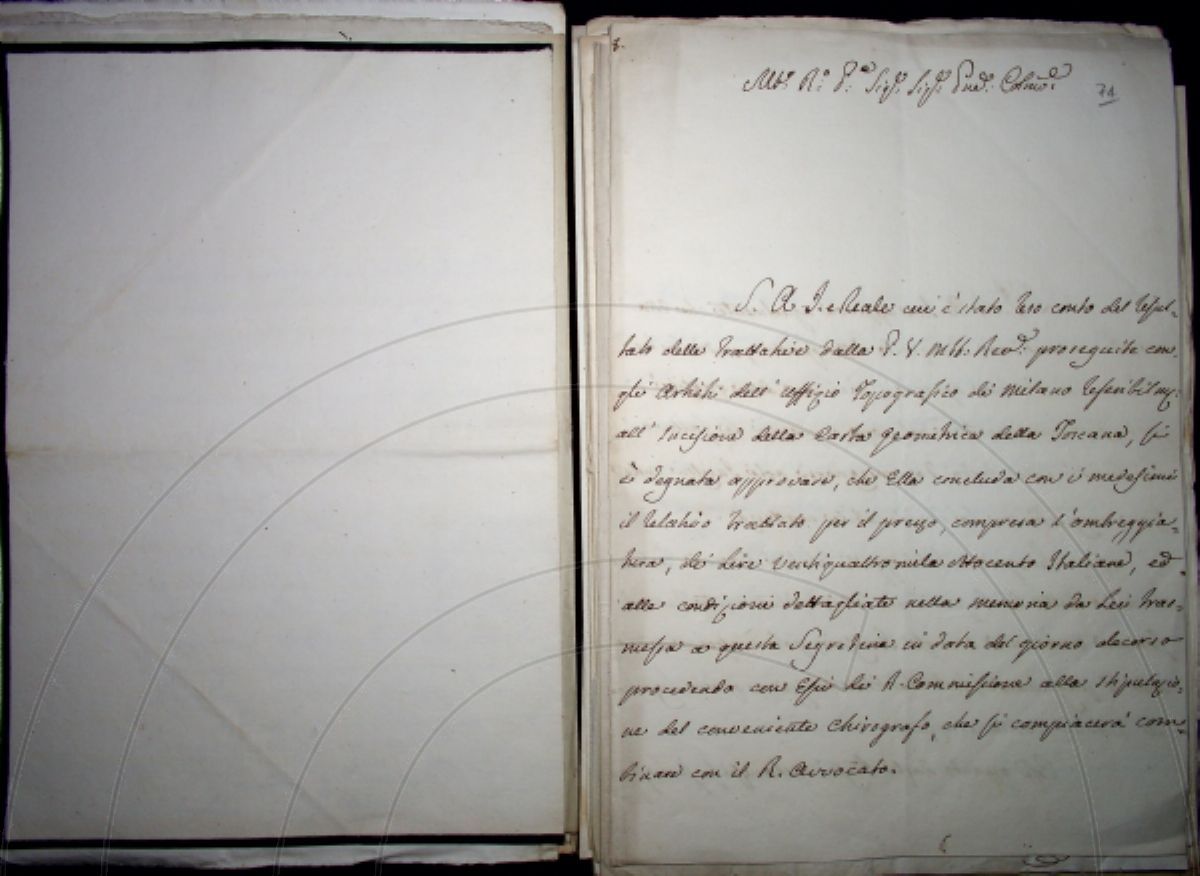 7.
Mto. R.o P.e Sig.r Sig.r Pne. Colmo.
74
S. A. I. e Reale cui è stato reso conto del resul-
tato delle trattative dalla P. V. Mto. Revd. proseguite con
gli Artisti dell' Uffizio Topografico di Milano
all' Incisione della Carta Geometrica della Toscana, si
è degnata approvare, che Ella concluda con i medesimi
il relativo trattato per il prezzo, compresa l'ombreggia-
tura, di Lire Ventiquattromila Ottocento Italiane, ed
alle condizioni dettagliate nella memoria da Lei tras-
messa a questa Segreteria in data del giorno decorso
procedendo con Essi di R. Commissione alla stipulazio-
ne del conveniente Chirografo, che si compiacerà com-
binare con il R. Avvocato.